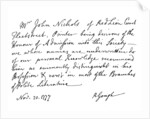 Mr John Nichols of Red Lion Court
Fleetstreet, Printer being desirous of the
Honour of Admission into this Society
we whose names are underwritten do
of our personal Knowledge recommend
him as eminently distinguished in his
Profession & vers'd in most of the Branches
of Polite Literature.
Nov. 20. 1777
R Gough